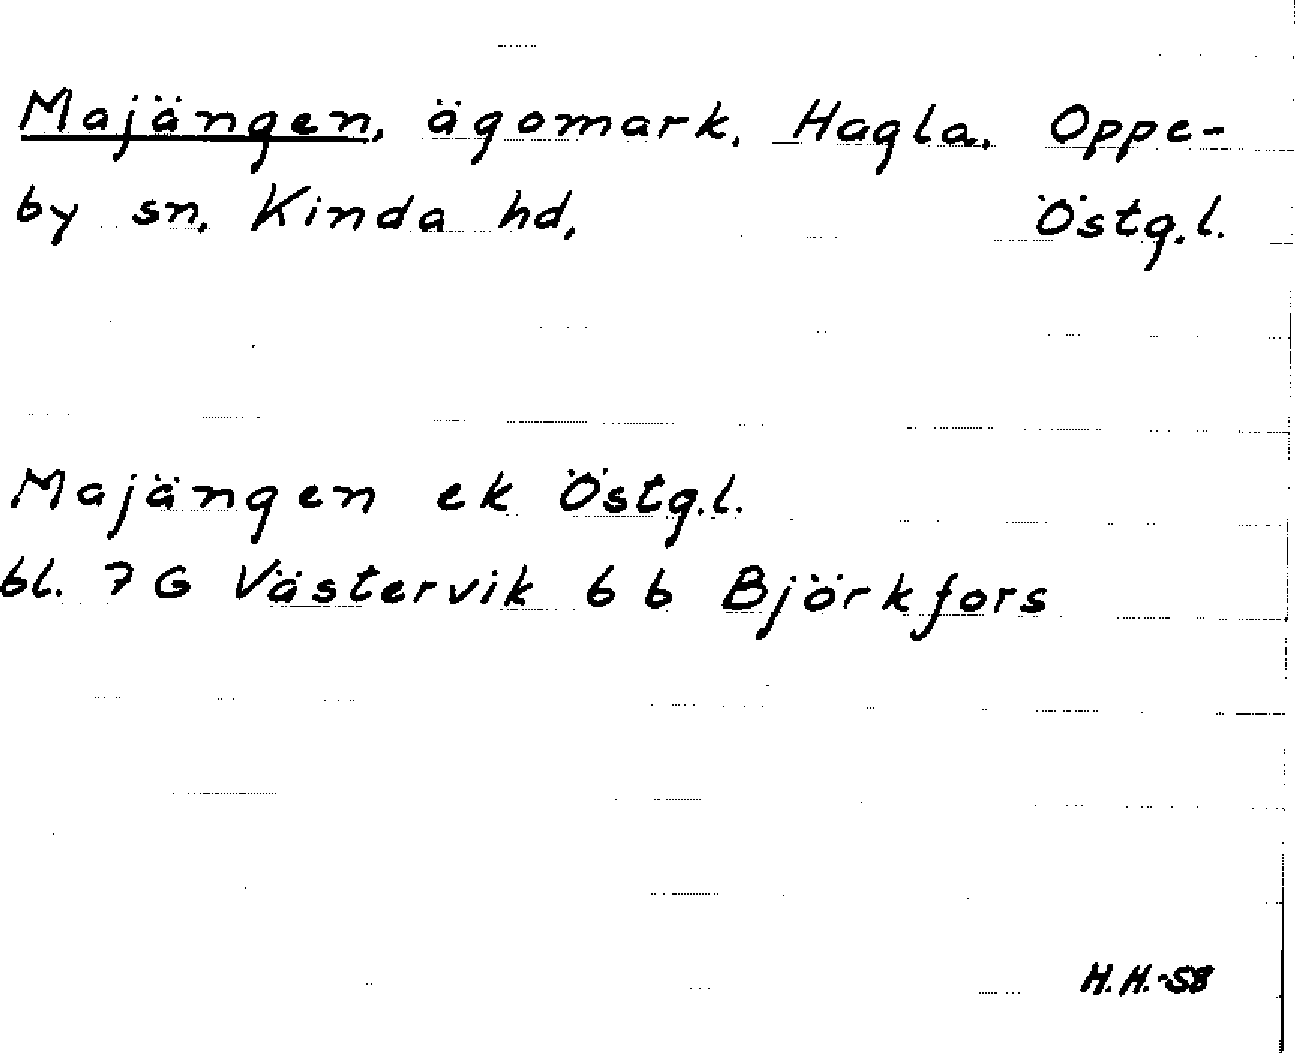 Majängen, ägomark, Hagla. Oppe-
by sn, Kinda hd, Östg.l.
Majängen ek Östg.l.
bl. 7 G Västervik 6 b Björkfors
H.H.-58